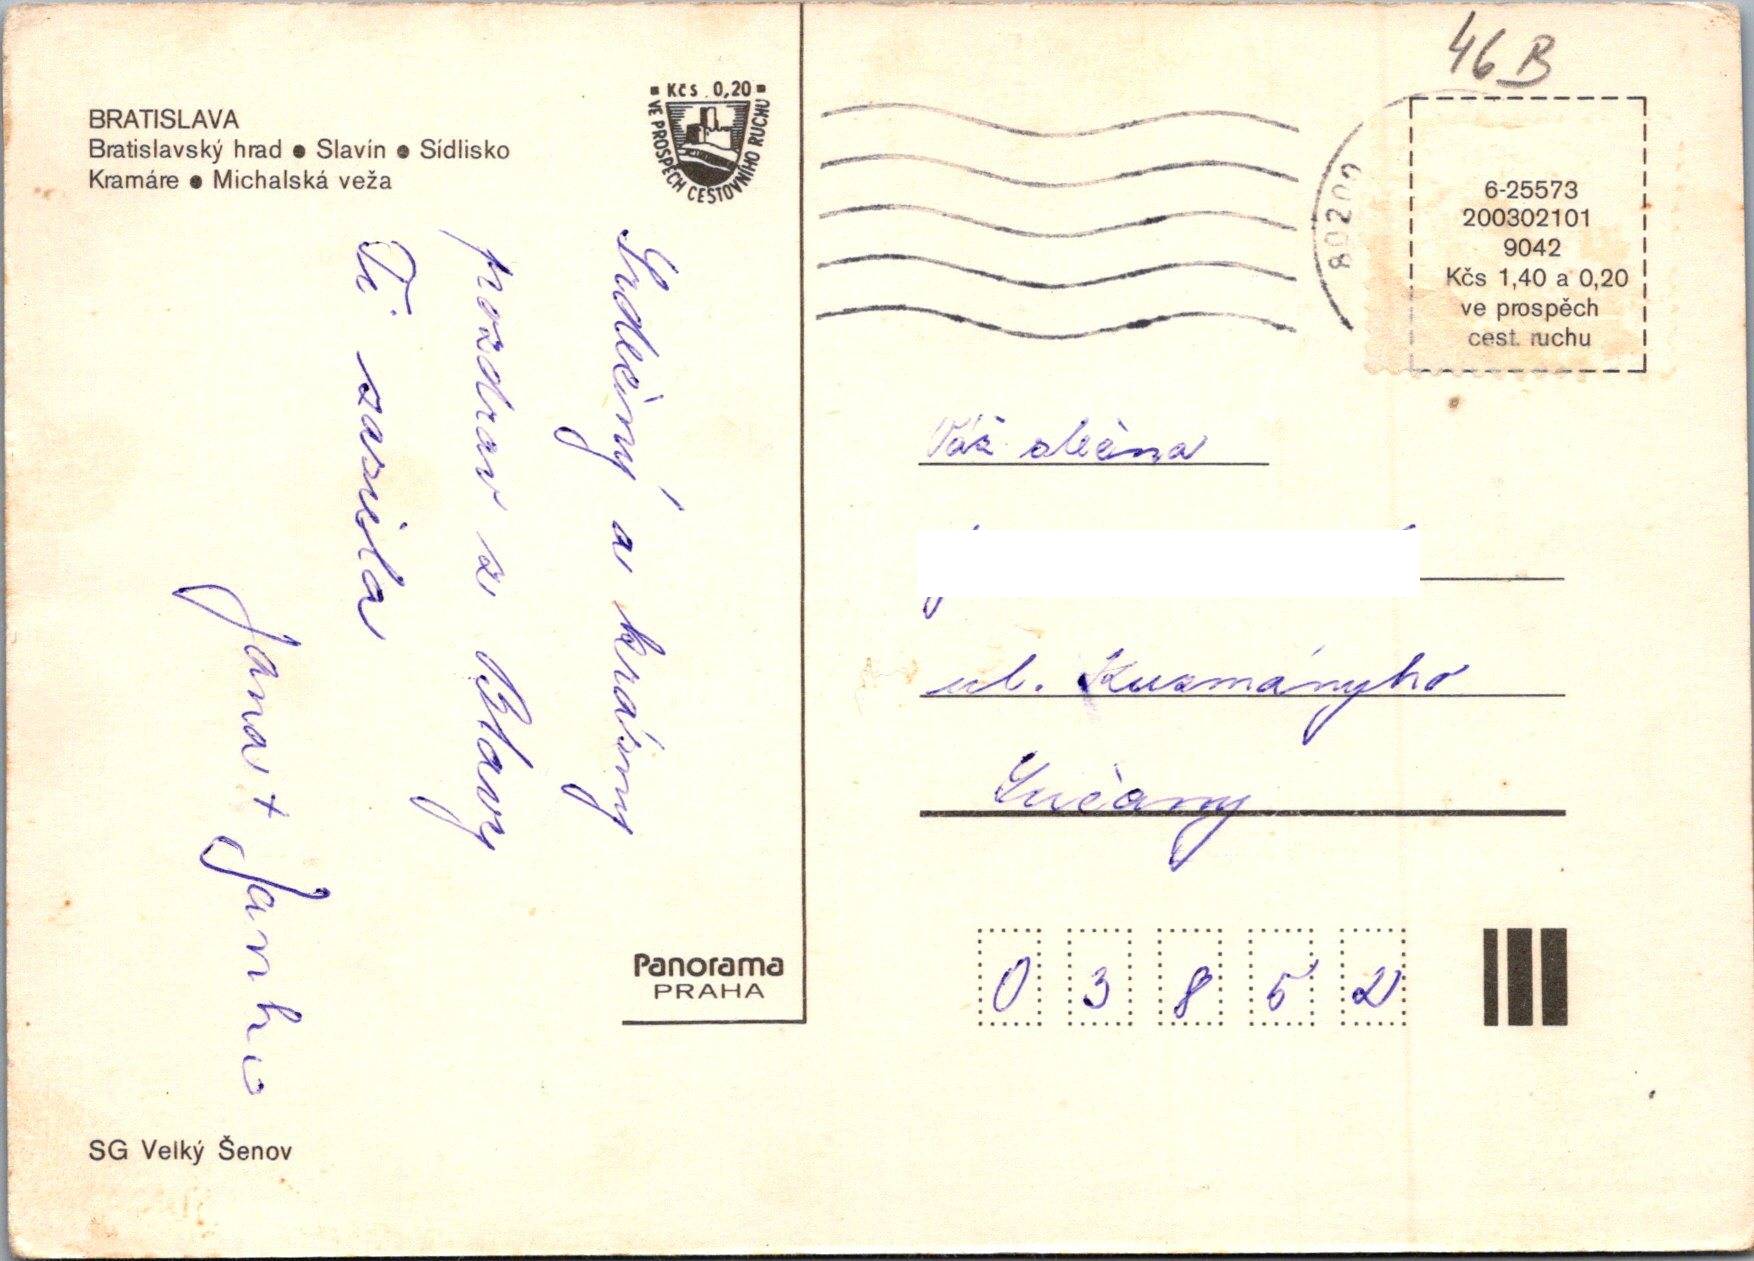 BRATISLAVA
Bratislavský hrad ● Slavín ● Sídlisko
Kramáre ● Michalská veža
Kčs 0,20
VE PROSPĚCH CESTOVNÍHO RUCHU
Srdečný a krásny
pozdrav z Blavy
Ti zasiela
Jana + Janko
Panorama
PRAHA
SG Velký Šenov
46 B
80200
6-25573
200302101
9042
Kčs 1,40 a 0,20
ve prospěch
cest. ruchu
Váž. slečna
ul. Kuzmányho
Lučany
0 3 8 5 2